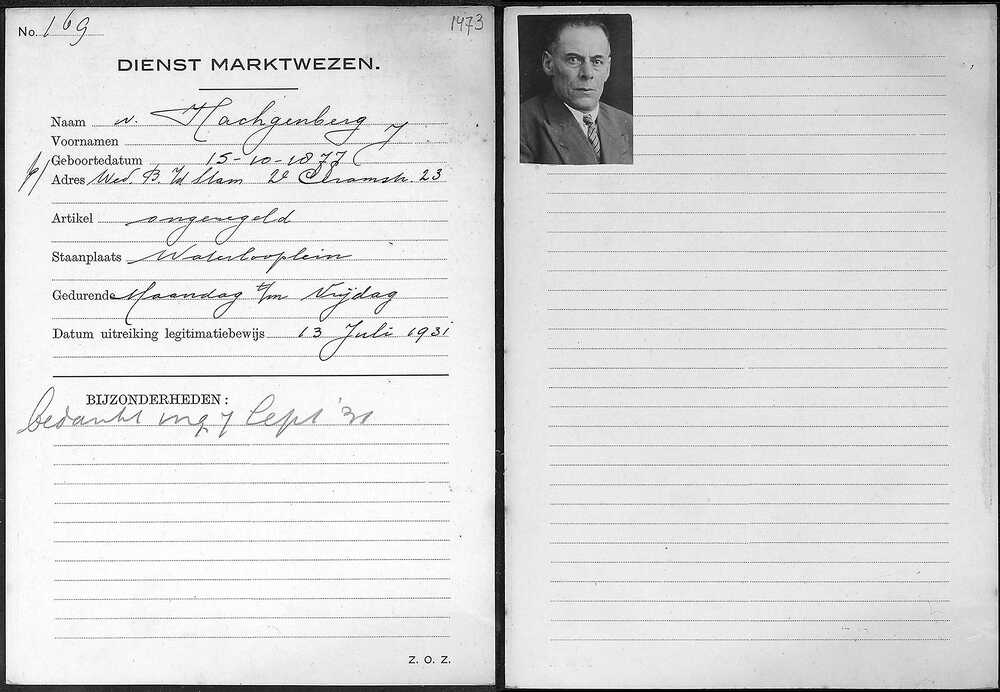 No. 169
1473
DIENST MARKTWEZEN.
Naam v. Hachgenberg J
Voornamen
Geboortedatum 15-10-1877
Adres Wed. B. v/d Stam 23
Artikel ongeregeld
Staanplaats Waterlooplein
Gedurende Maandag t/m Vrijdag
Datum uitreiking legitimatiebewijs 13 Juli 1931
BIJZONDERHEDEN:
bedankt ing. 7 Sept '31
Z. O. Z.